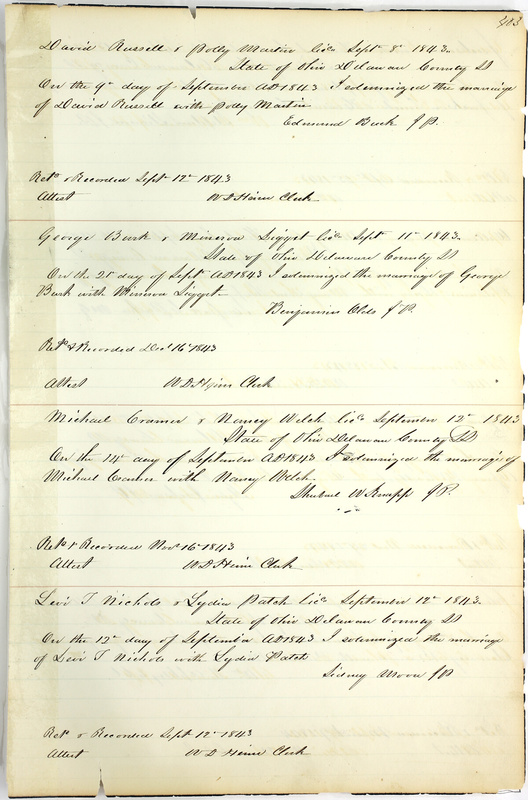 403
David Russell & Polly Martin Licc Sept 8th 1843.
State of Ohio Delaware County SS
On the 9th day of September AD 1843 I solemnized the marriage
of David Russell with Polly Martin
Edmund Buck J P.
Retd & Recorded Sept 12th 1843
Attest W D Heim Clerk
George Burk & Minerva Liggit Licc Sept 11th 1843.
State of Ohio Delaware County SS
On the 21st day of Sept AD 1843 I solemnized the marriage of George
Burk with Minerva Ligget
Benjamin Olds J P.
Retd & Recorded Decr 16th 1843
Attest W D Heim Clerk
Michael Cramer & Nancy Welch Licc September 12th 1843
State of Ohio Delaware County SS
On the 14th day of September AD 1843 I solemnized the marriage of
Michael Cramer with Nancy Welch.
W Knapp J P.
Retd & Recorded Novr 16th 1843
Attest W D Heim Clerk
Levi T Nichols & Lydia Patch Licc September 12th 1843.
State of Ohio Delaware County SS
On the 12th day of September AD 1843 I solemnized the marriage
of Levi T Nichols with Lydia Patch
Sidney Moore J P
Retd & Recorded Sept 12th 1843
Attest W D Heim Clerk